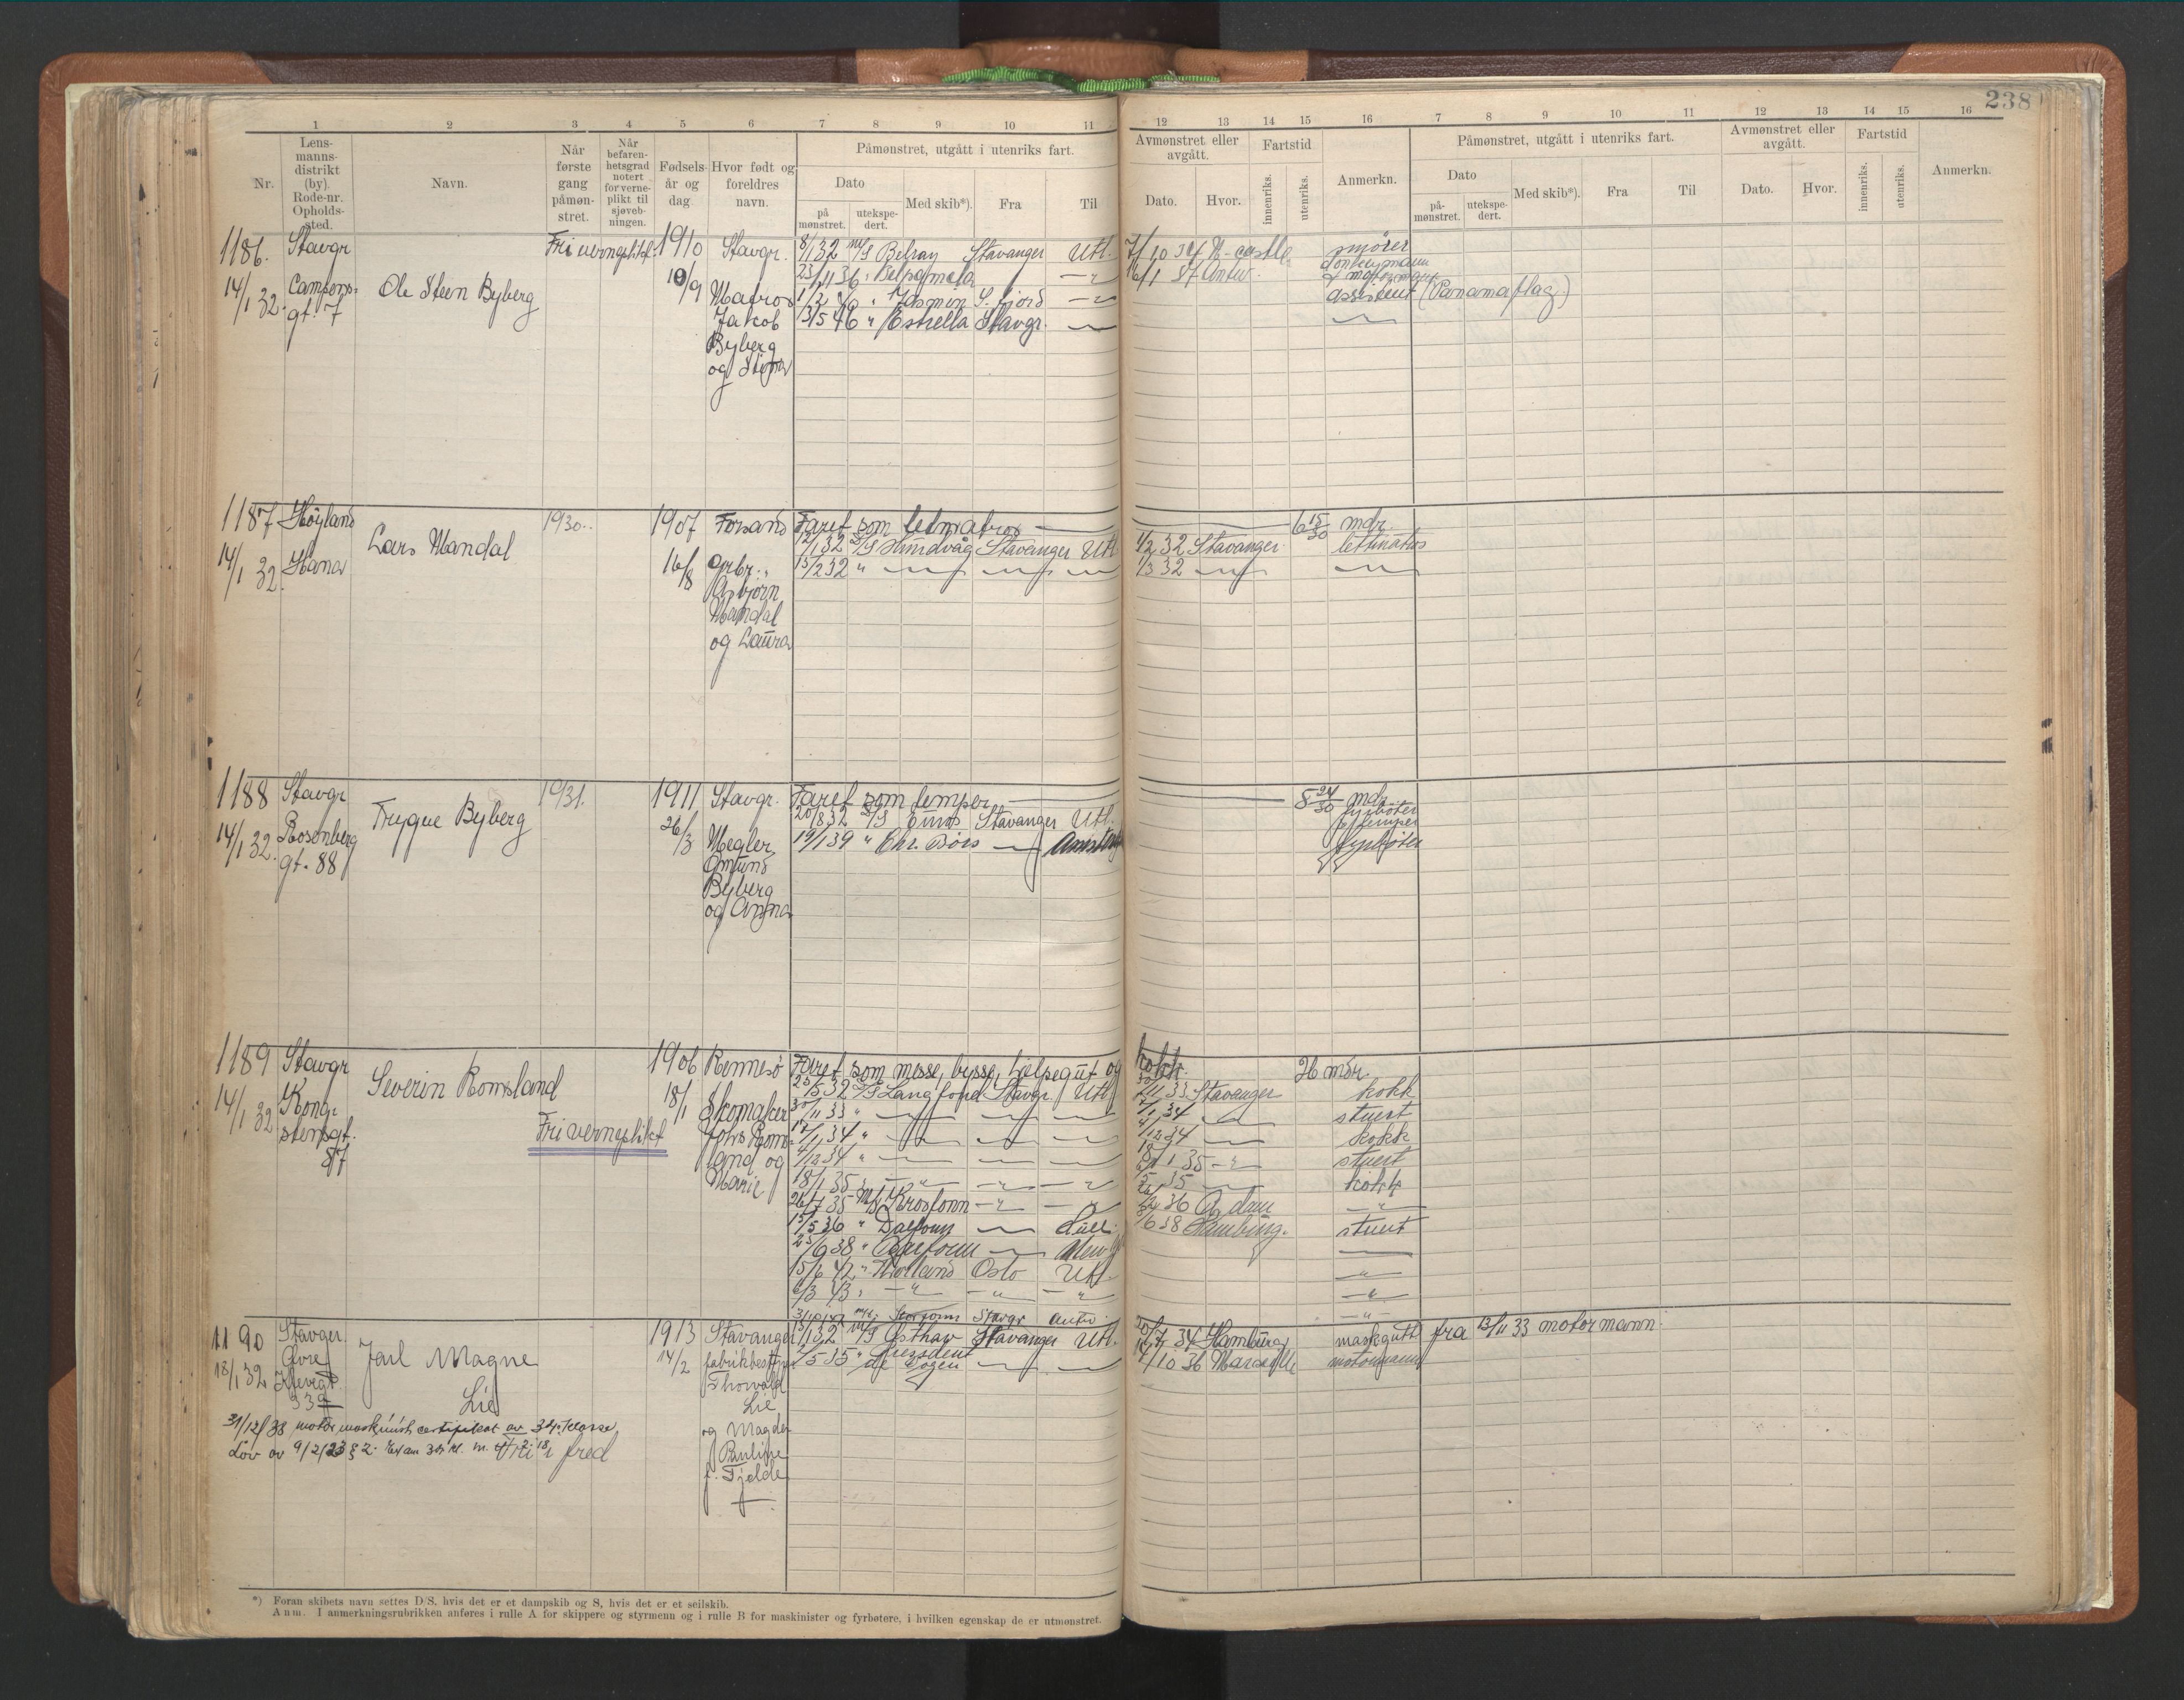 238
1 2 3 4 5 6 7 8 9 10 11 12 13 14 15 16 7 8 9 10 11 12 13 14 15 16
Nr.
Lens-
manns-
distrikt
(by).
Rode-nr.
Opholds-
sted.
Navn.
Når
første
gang
påmøn-
stret.
Når
befaren-
hetsgrad
notert
for verne-
plikt til
sjøveb-
ningen.
Fødsels
år og
dag
Hvor født og
foreldres
navn.
Påmønstret, utgått i utenriks fart.
Dato
på
mønstret.
utekspe-
dert.
Med skib*).
Fra
Til
Avmønstret eller
avgått.
Dato.
Hvor.
Fartstid
innenriks.
utenriks.
Anmerkn.
Påmønstret, utgått i utenriks fart.
Dato
på-
mønstret.
utekspe-
dert.
Med skib*).
Fra
Til
Avmønstret eller
avgått.
Dato.
Hvor.
Fartstid
innenriks.
utenriks.
Anmerkn.
1186. Stavgr Fri verneplikt. 1910 Stavgr. 8/1 32 M/S Belray Stavanger Utl. 7/10 34 N-castle smører
14/1 32. Campens- Ole Steen Byberg 10/9 Matros 23/11 36 " Belpamela — " — 16/1 37 Antw. donkeymann
gt. 7 Jakob 1/2 40 " Jasmin S. fjord — " — & motormann
Byberg 13/5 46 " Estrella Stavgr. — " — assistent (Panamaflag)
og Stina
1187 Høyland Lars Mandal 1930.. 1907 Forsand Faret som letmatros 6 15/30 mdr.
14/1 32. Hana 16/8 Arbr. 12/1 32 D/S Hundvåg Stavanger Utl 1/2 32 Stavanger lettmatros
Asbjørn 15/2 32 " — " — — " — — " — 1/3 32 — " — — " —
Mandal
og Laura
1188 Stavgr Trygve Byberg 1931. 1911 Stavgr. Faret som lemper 8 24/30 mdr.
14/1 32. Rosenberg 26/3 Megler 20/8 32 D/S Stavanger Utl. fyrbøter
gt. 88 Amund 19/1 39 " Chr. Børs — " — & lemper
Byberg fyrbøter
og Anna
1189 Stavgr Severin Romsland 1906 Rennesø Faret som messe, bysse, hjelpegut og kokk. 26 mdr.
14/1 32 Kong- Fri vernplikt 18/1 Skomaker 23/5 32 D/S Langfond Stavgr. Utl 30/11 33 Stavanger kokk
stensgt. Johs Rom- 30/11 33 " — " — 7/1 34 — " — stuert
87 land og 17/1 34 " — " — 4/12 34 — " — kokk
Marie 4/12 34 " — " — 18/1 35 — " — stuert
18/1 35 " — " — 35 — " — kokk
26/7 35 M/S Krosfonn — " — 36 A dam — " —
15/5 36 " Dalfonn — " — 6 38 Hamburg. stuert
23/9 38 " — " —
15/6 42 " Oslo Utl. — " —
2/3 43 " — " — — " — — " — — " —
Stavgr Antw. — " —
1190 Stavger Jarl Magne Lie 1913 Stavanger 13/1 32 M/S Østhav Stavanger Utl. 34 Hamburg maskgutt fra 13/11 33 motormann.
13/1 32 Øvre 14/2 fabrikbestyr 5 35 " President de Vogeu — " — 10 36 Marseille motormann
Klevegt. Thorvald
33 Lie
og Magda
Pauline
f. Fjelde
31/12/38 motor maskinist certifikat av 3dje klasse
Lov av 9/2/23 § 2. Fri i fred
*) Foran skibets navn settes D/S, hvis det er et dampskib og S, hvis det er et seilskib.
Anm. I anmerkningsrubrikken anføres i rulle A for skippere og styrmenn og i rulle B for maskinister og fyrbøtere, i hvilken egenskap de er utmønstret.